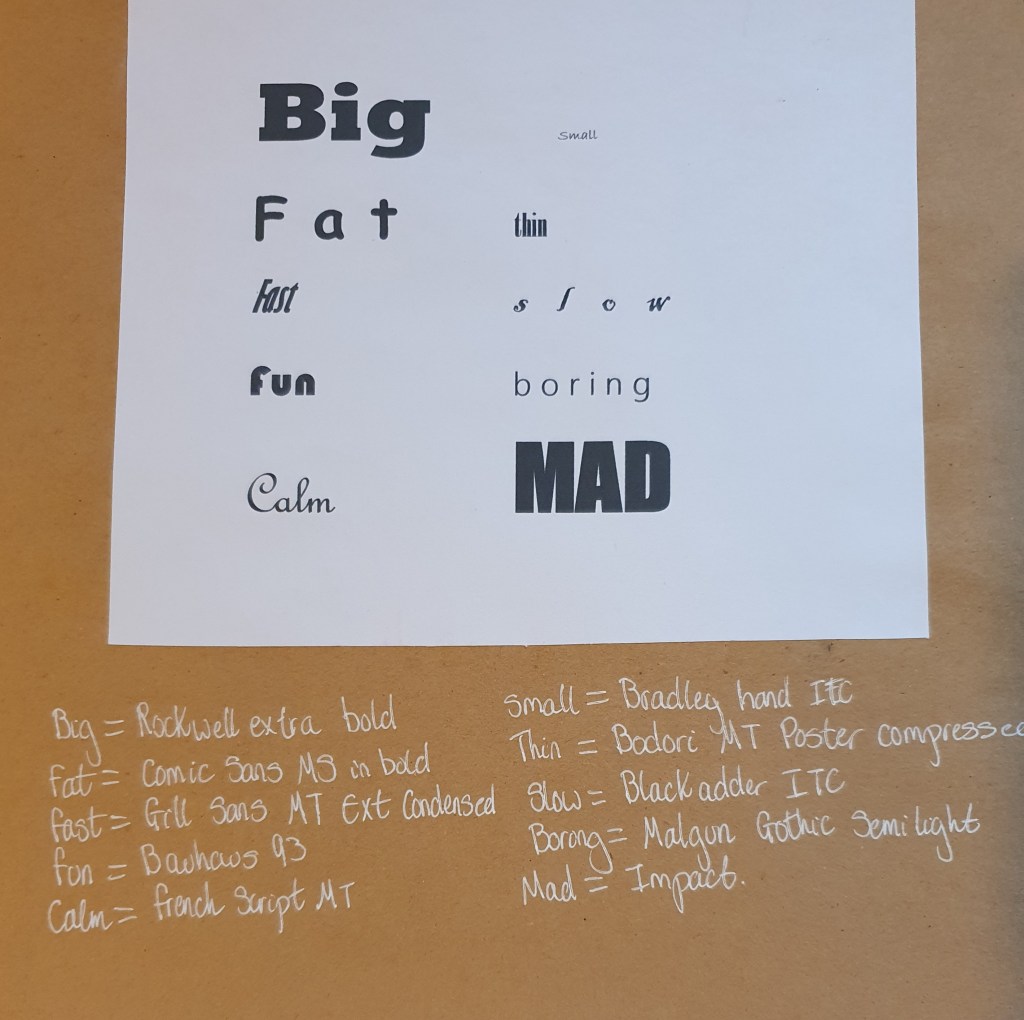 Big
small
Fat
thin
Fast
slow
Fun
boring
Calm
MAD
Big = Rockwell extra bold
Fat = Comic Sans MS in bold
Fast = Grill Sans MT Ext Condensed
fun = Bauhaus 93
Calm = french Script MT
Small = Bradley hand ITC
Thin = Bodori MT Poster compressed
Slow = Blackadder ITC
Borong = Malgun Gothic Semilight
Mad = Impact.